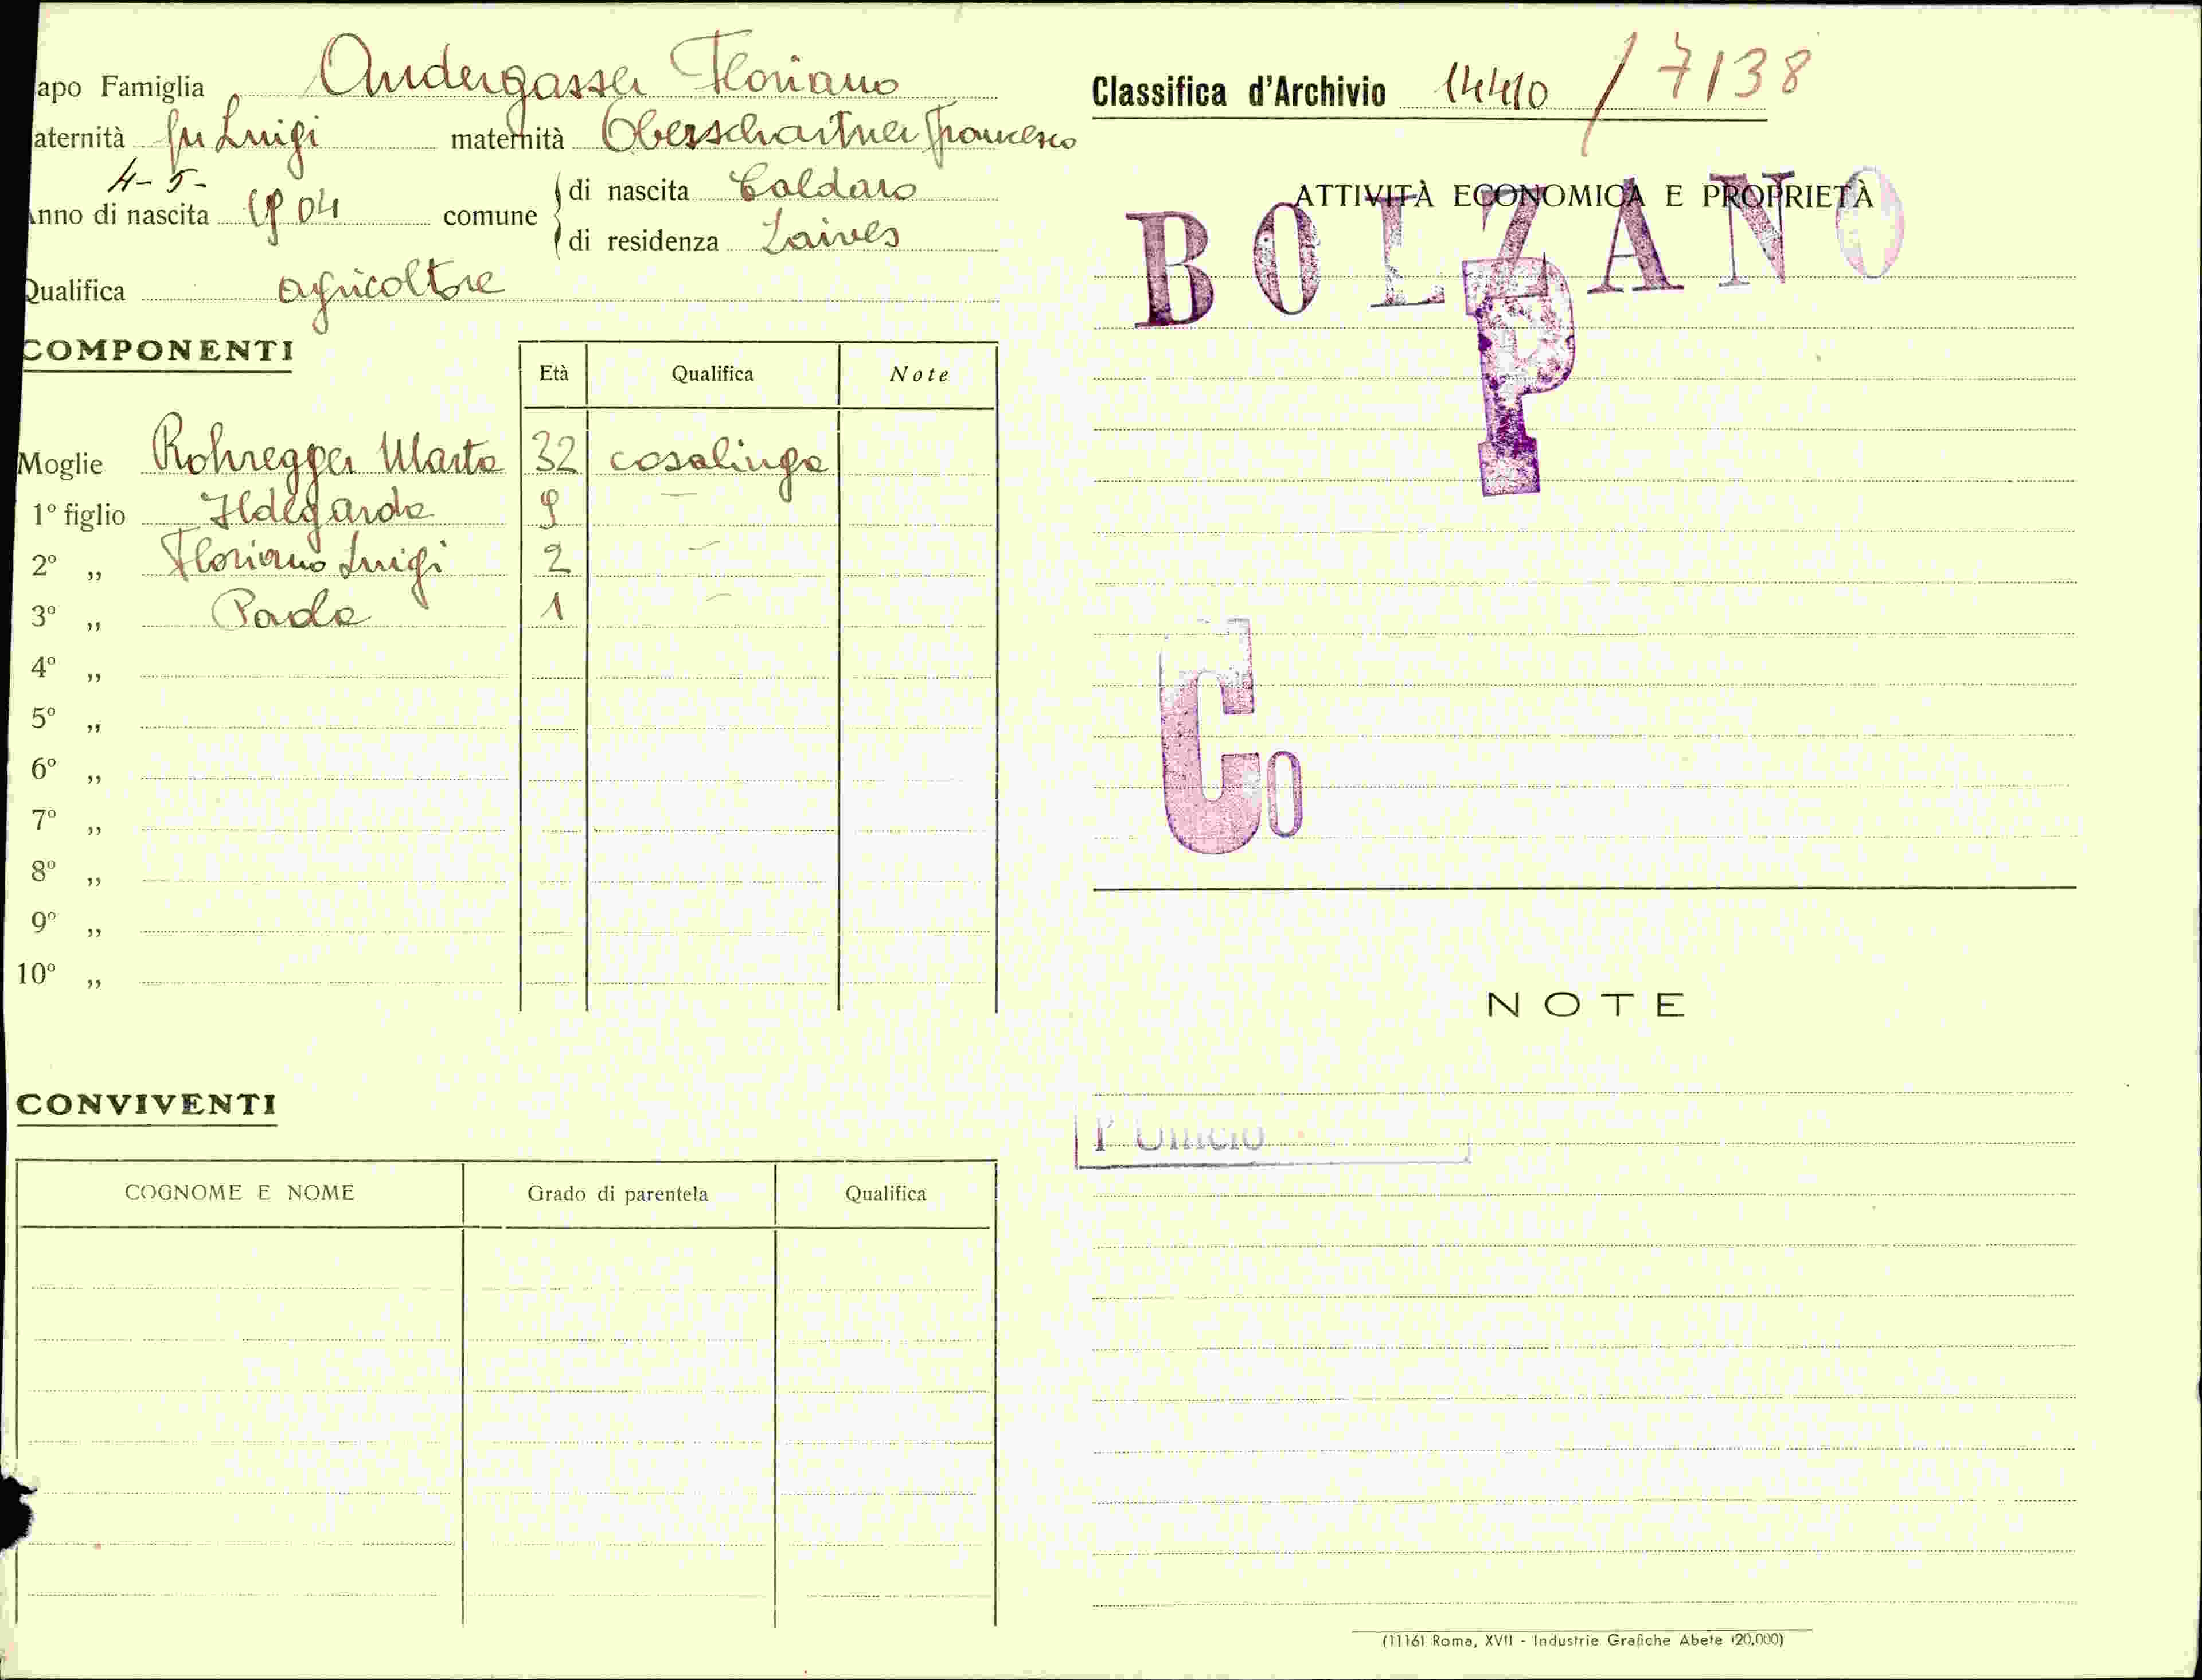 apo Famiglia Andergassen Floriano
aternità fu Luigi maternità Oberschartner Francesca
4-5-
Anno di nascita 1904 comune di nascita Caldaro
di residenza Laives
Qualifica agricoltore
COMPONENTI
Età Qualifica Note
Moglie Rohregger Marta 32 casalinga
1º figlio Ildegarda 9 —
2º „ Floriano Luigi 2 —
3º „ Paola 1 —
4º „
5º „
6º „
7º „
8º „
9º „
10º „
CONVIVENTI
COGNOME E NOME Grado di parentela Qualifica
Classifica d'Archivio 14410 / 7138
ATTIVITÀ ECONOMICA E PROPRIETÀ
BOLZANO
P
Co
NOTE
1º Ufficio
(1116) Roma, XVII - Industrie Grafiche Abete (20.000)